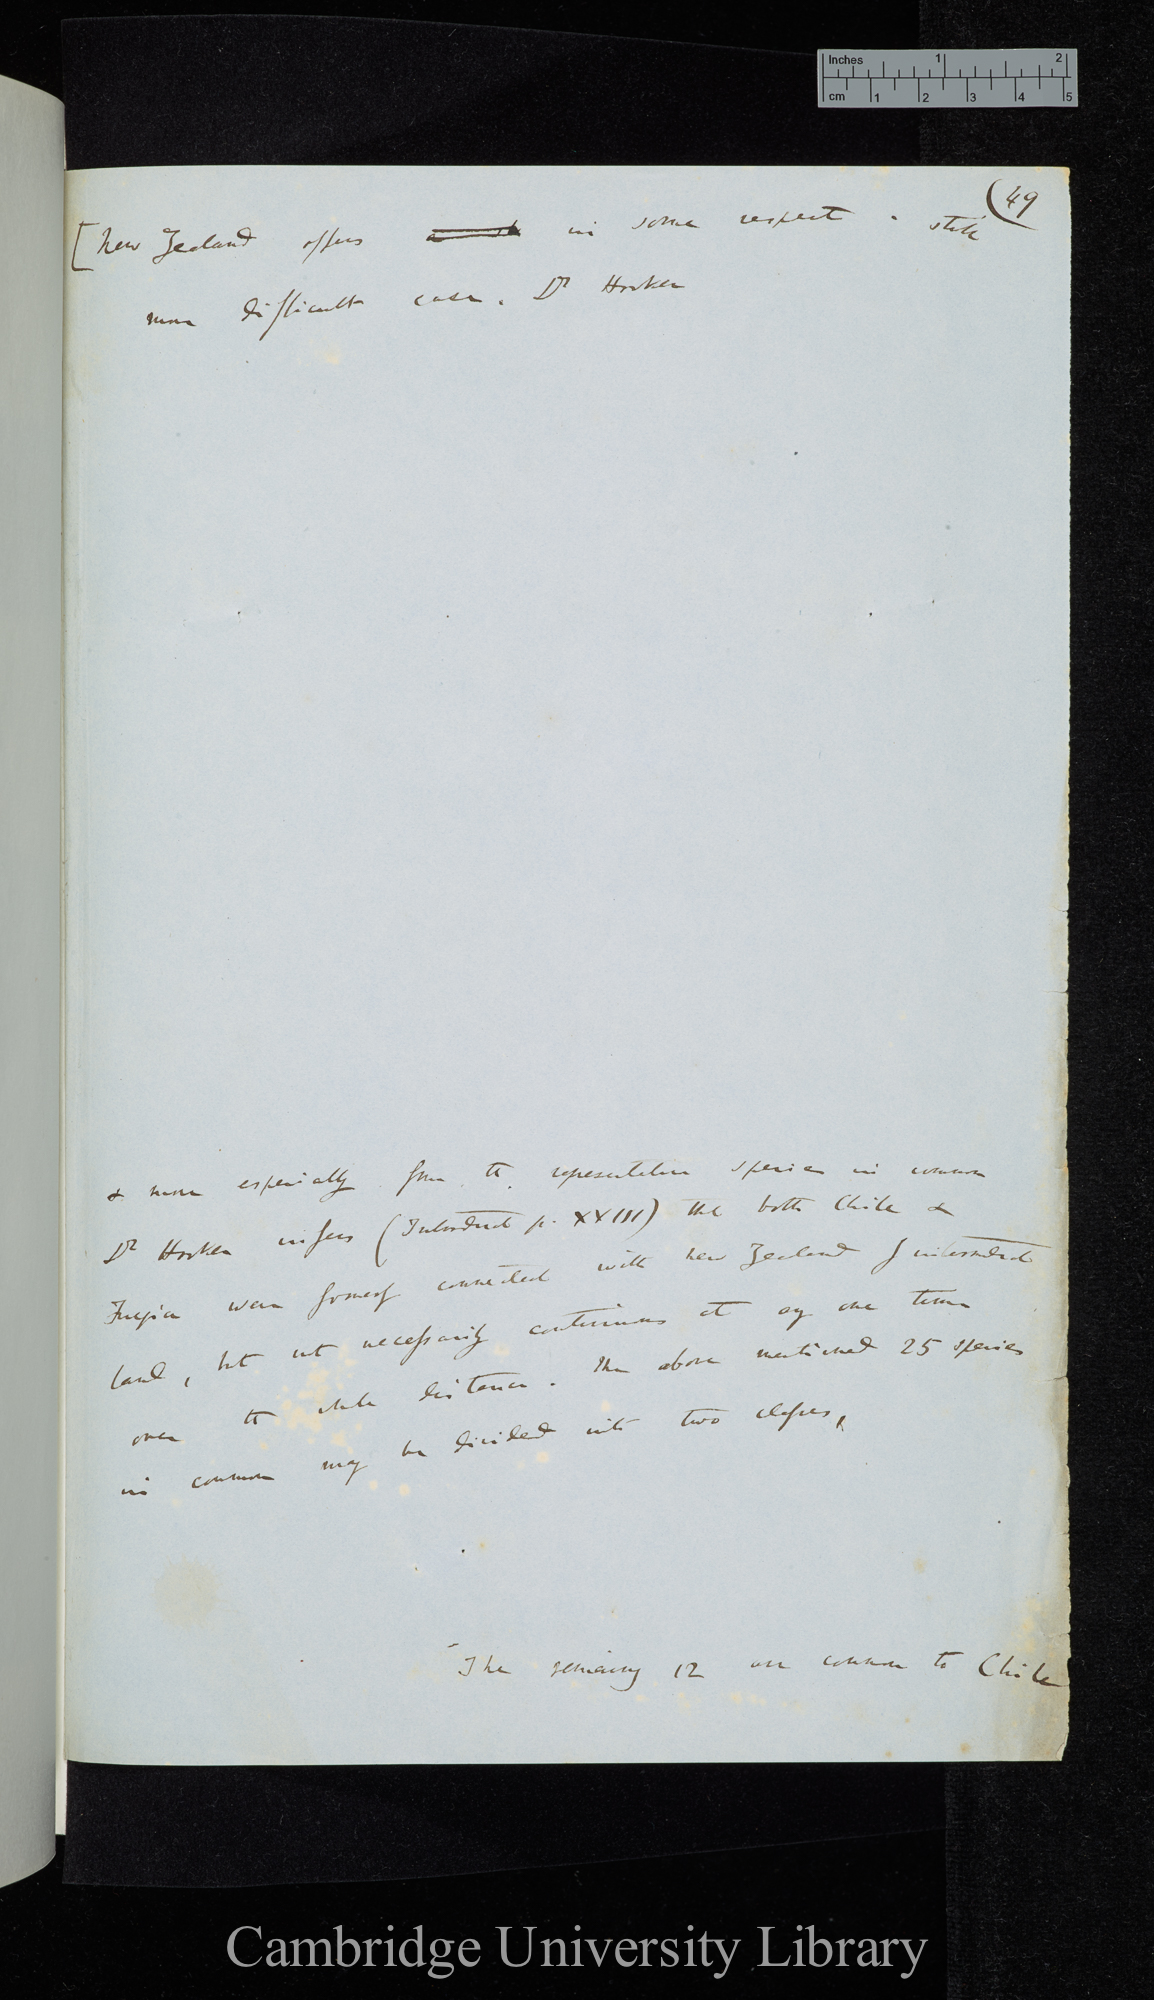 Inches 1 2
cm 1 2 3 4 5
(49
[New Zealand offers in some respect a still
more difficult case. Dr Hooker
& more especially from the representative species in common
Dr Hooker infers (Introduct p. XXIII) that both Chile &
Fuegia were formerly connected with New Zealand by intermediate
land, but not necessarily continuous at any one time
over the whole distance. The above mentioned 25 species
in common may be divided into two classes,
The remaining 12 are common to Chile
Cambridge University Library